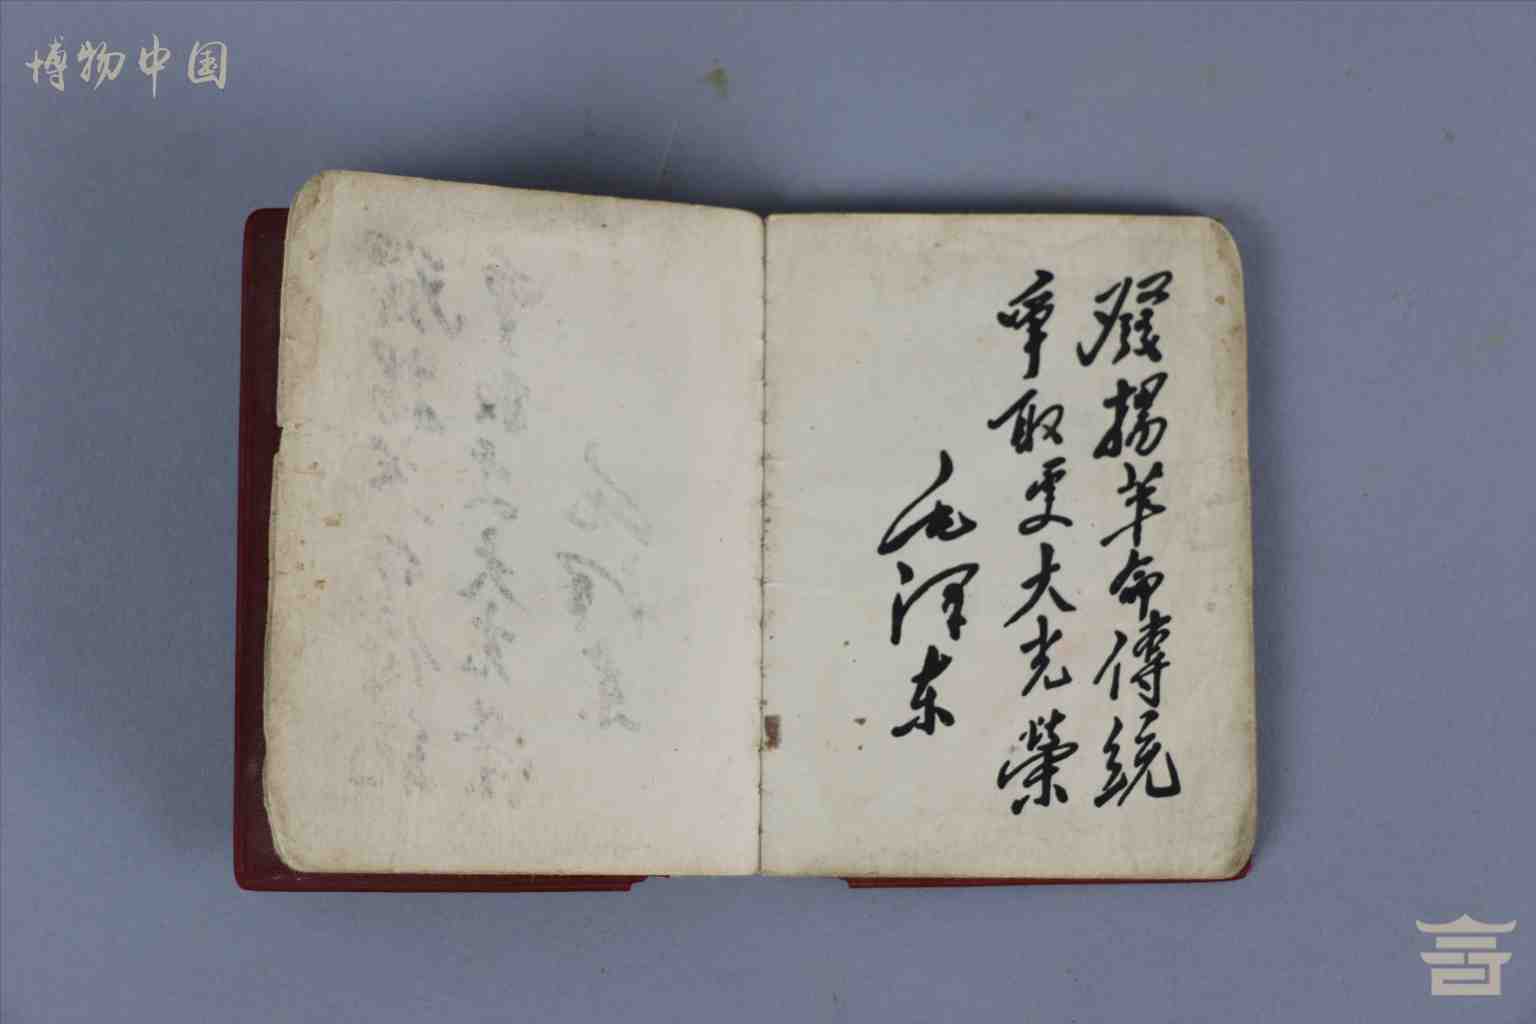 博物中国
發揚革命傳統
爭取更大光榮
毛澤东